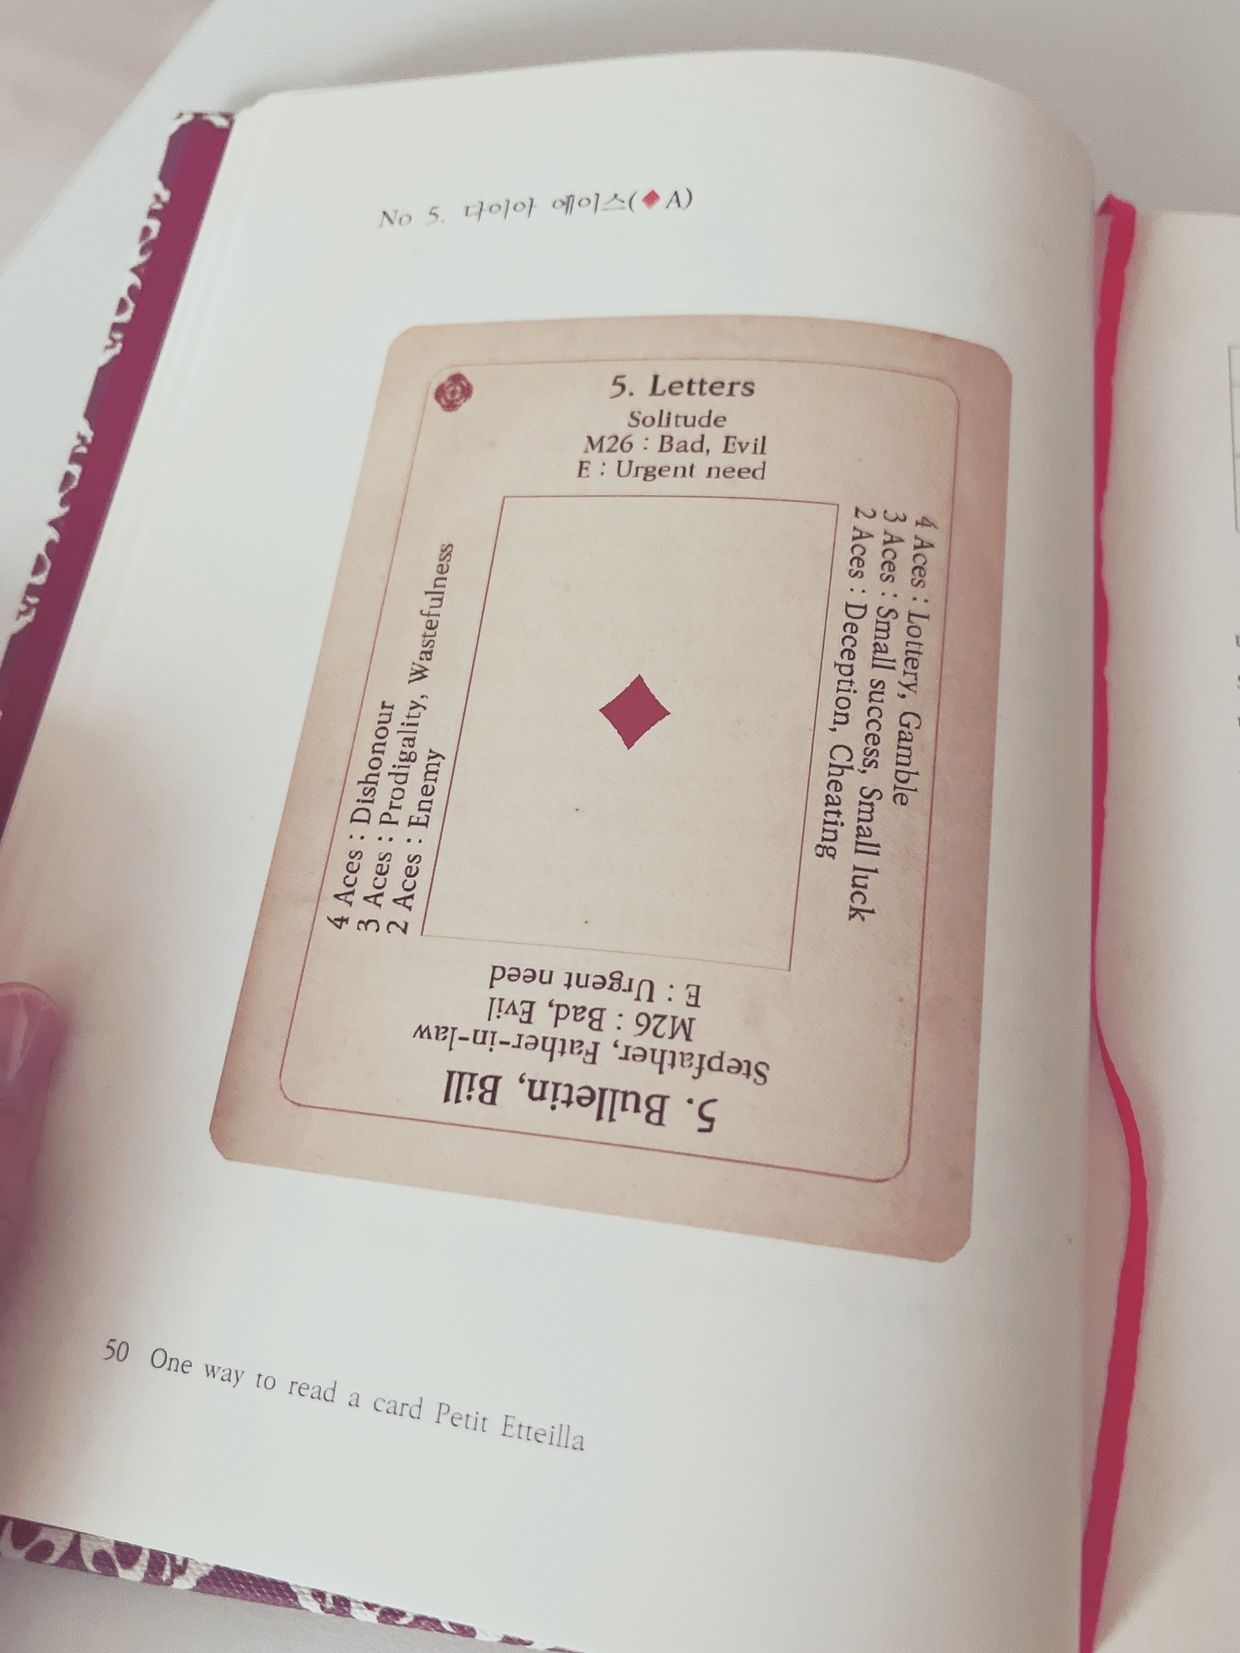 No 5. 다이아 에이스(♦A)
5. Letters
Solitude
M26 : Bad, Evil
E : Urgent need
4 Aces : Lottery, Gamble
3 Aces : Small success, Small luck
2 Aces : Deception, Cheating
4 Aces : Dishonour
3 Aces : Prodigality, Wastefulness
2 Aces : Enemy
5. Bulletin, Bill
Stepfather, Father-in-law
M26 : Bad, Evil
E : Urgent need
50 One way to read a card Petit Etteilla